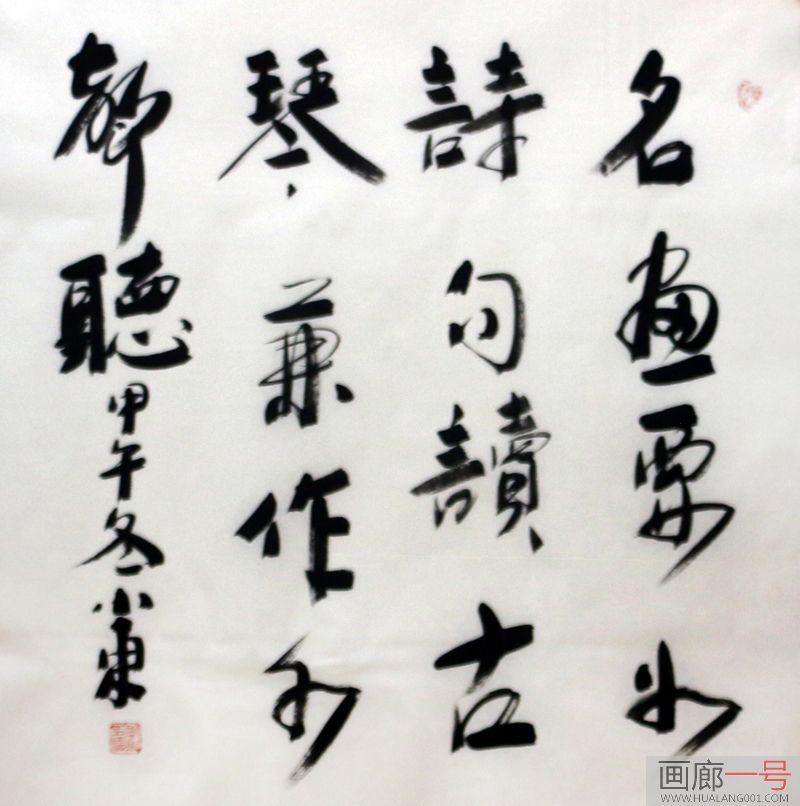 名畫要如
詩句讀古
琴兼作水
聲聽
甲午冬小東
画廊一号
WWW.HUALANG001.COM